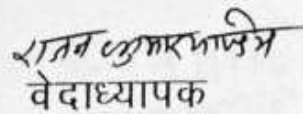 राजन कुमार पाण्डेय
वेदाध्यापक